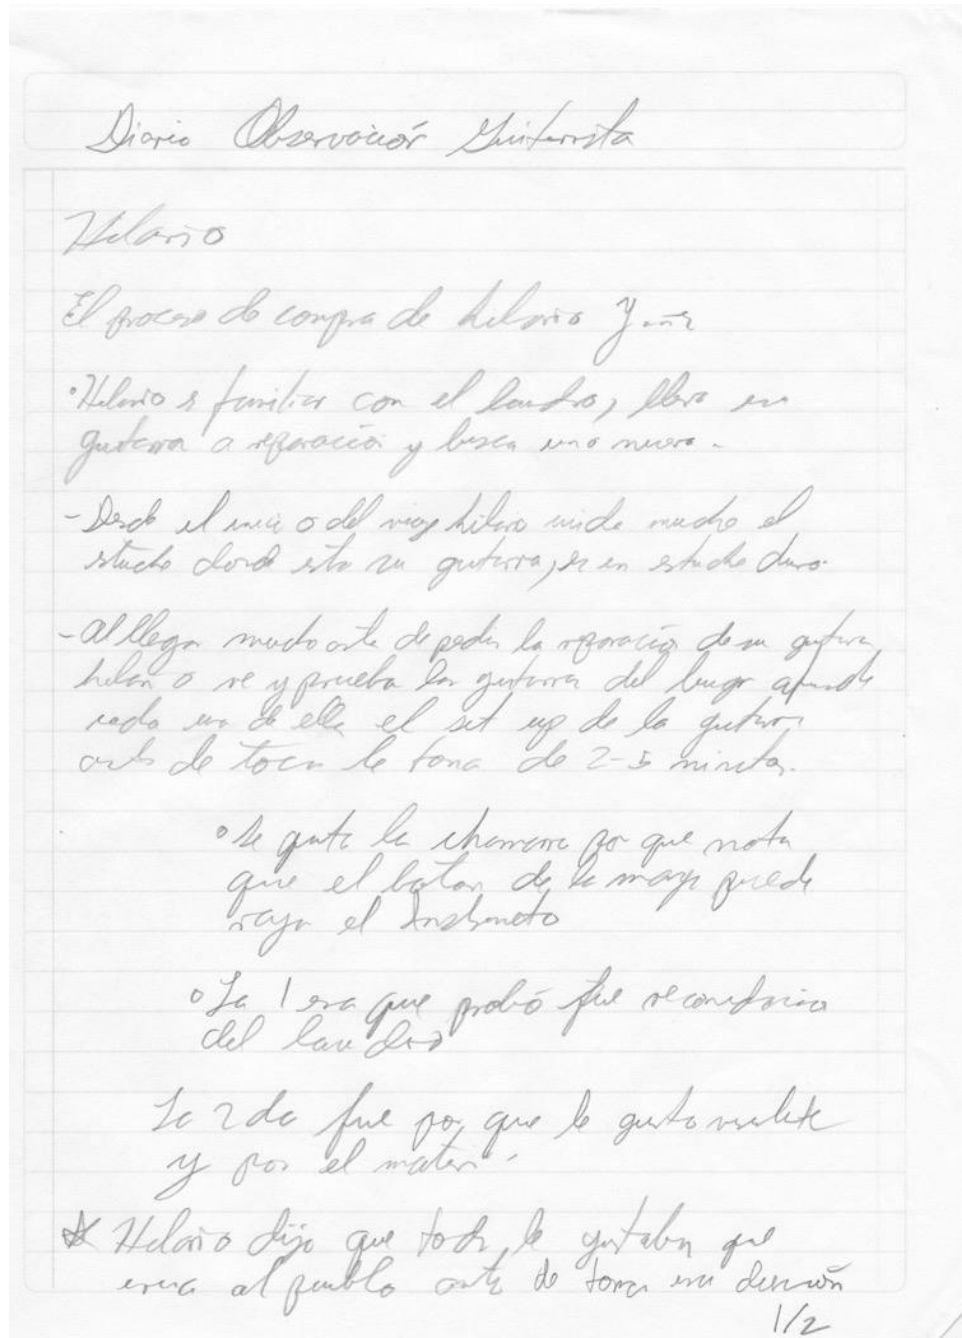 Diario Observación Guitarrista
Hilario
El proceso de compra de hilario y
• Hilario es familiar con el laudro, lleva su
guitarra a reparación y busca una nueva.
- Desde el inicio del viaje hilario cuida mucho el
estuche donde esta su guitarra, es un estuche duro.
- Al llegar mucho ante de pedir la reparación de su guitarra
hilario ve y prueba las guitarras del lugar
cada una de ella el set up de la guitarra
antes de tocar le toma de 2-5 minutos.
• Se quita la chamarra por que nota
que el boton de la manga puede
rayar el Instrumento
• La 1 era que probó fue recomendación
del laudero
La 2da fue por que le gusto visualmente
y por el material
☆ Hilario dijo que todas le gustaban que
al pueblo antes de tomar una decisión
1/2